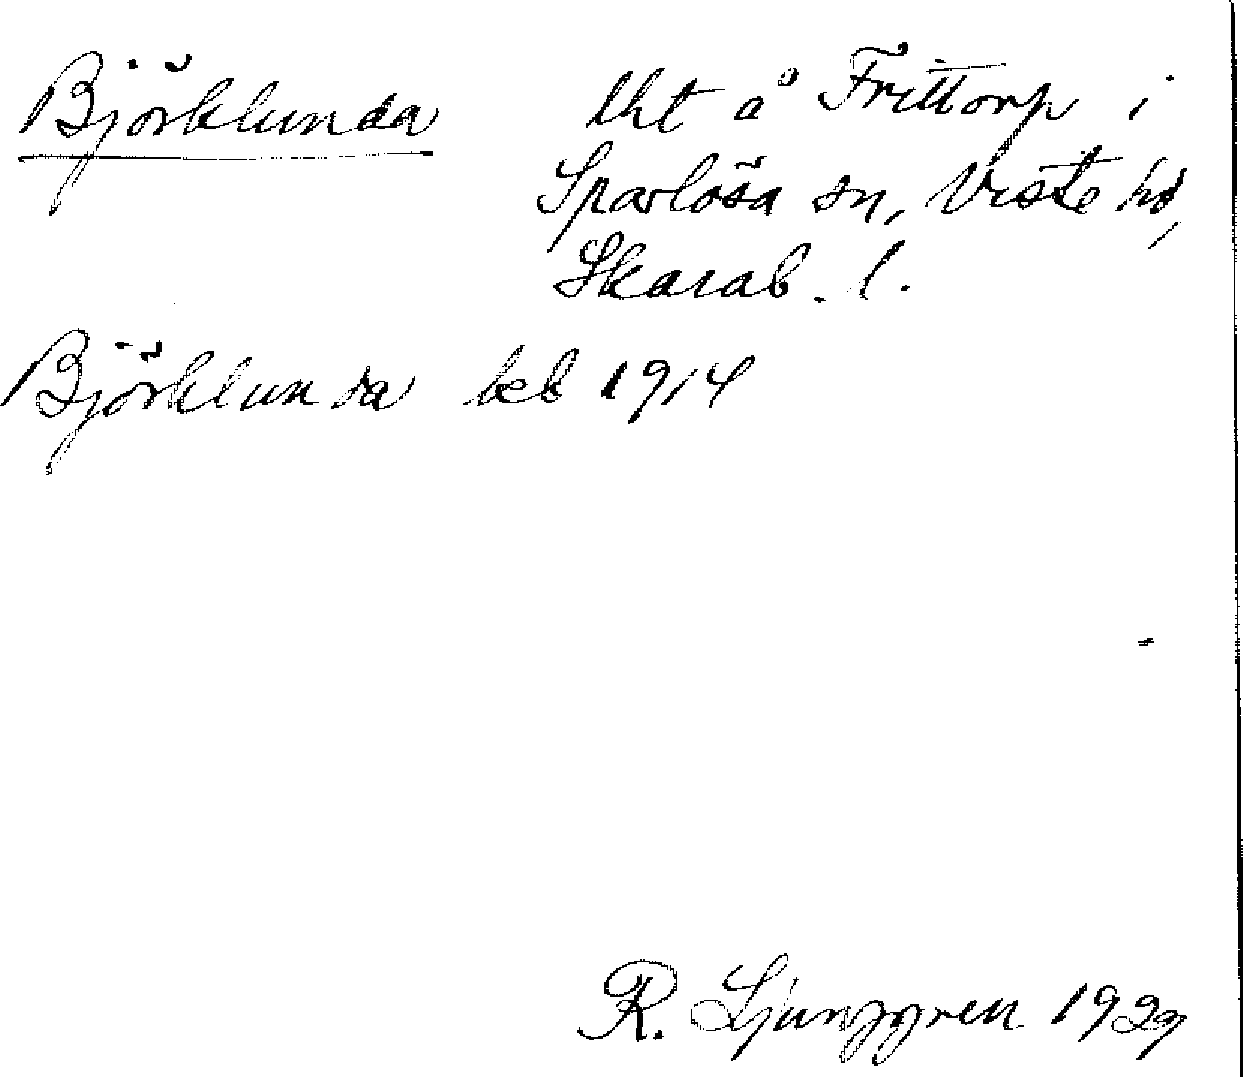 Björklunda lht å Frittorp i
Sparlösa sn, Viste hd,
Skarab. l.
Björklunda keb 1914
R. Ljunggren 1929